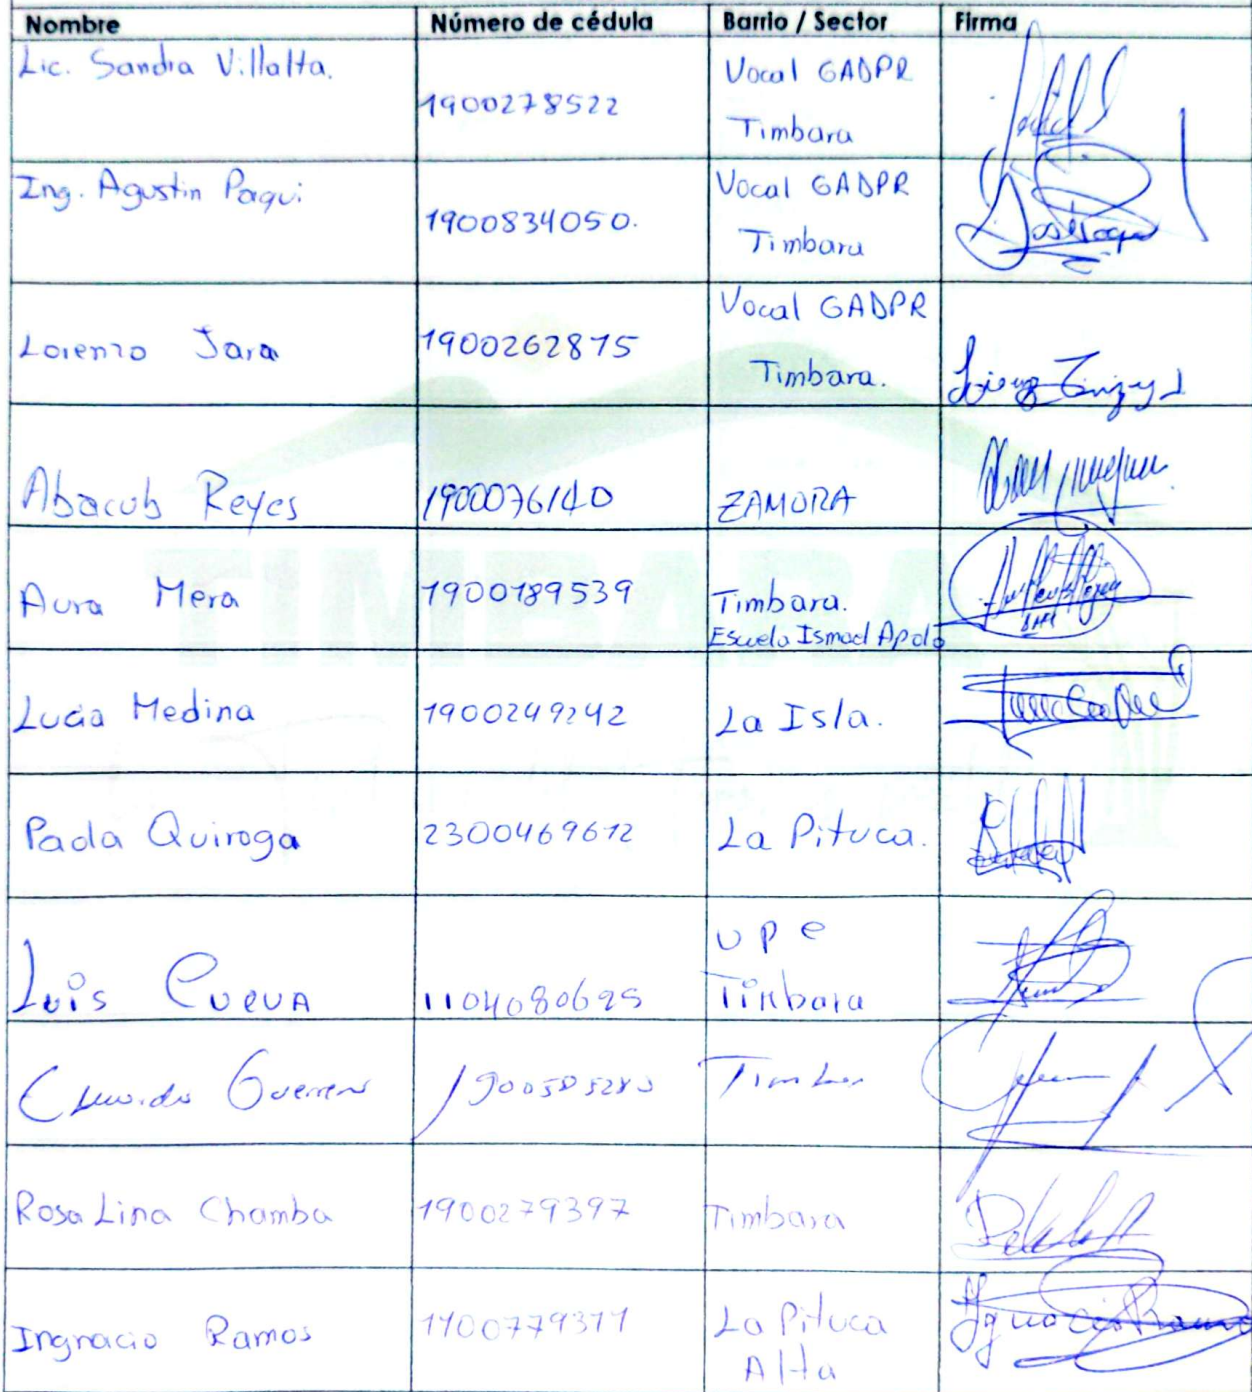 Nombre Número de cédula Barrio / Sector Firma
Lic. Sandra Villalta. 1900278522 Vocal GADPR
Timbara
Ing. Agustin Paqui 1900834050. Vocal GADPR
Timbara
Lorenzo Jara 1900262875 Vocal GADPR
Timbara.
Abacub Reyes 1900076140 ZAMORA
Aura Mera 1900189539 Timbara.
Escuela Ismael Apolo
Lucia Medina 1900249242 La Isla.
Paola Quiroga 2300469612 La Pituca.
Luis Cueva 1104080625 UPC
Timbara
Guerrero
Rosa Lina Chamba 1900279397 Timbara
Ingnacio Ramos La Pituca
Alta
TIMBARA